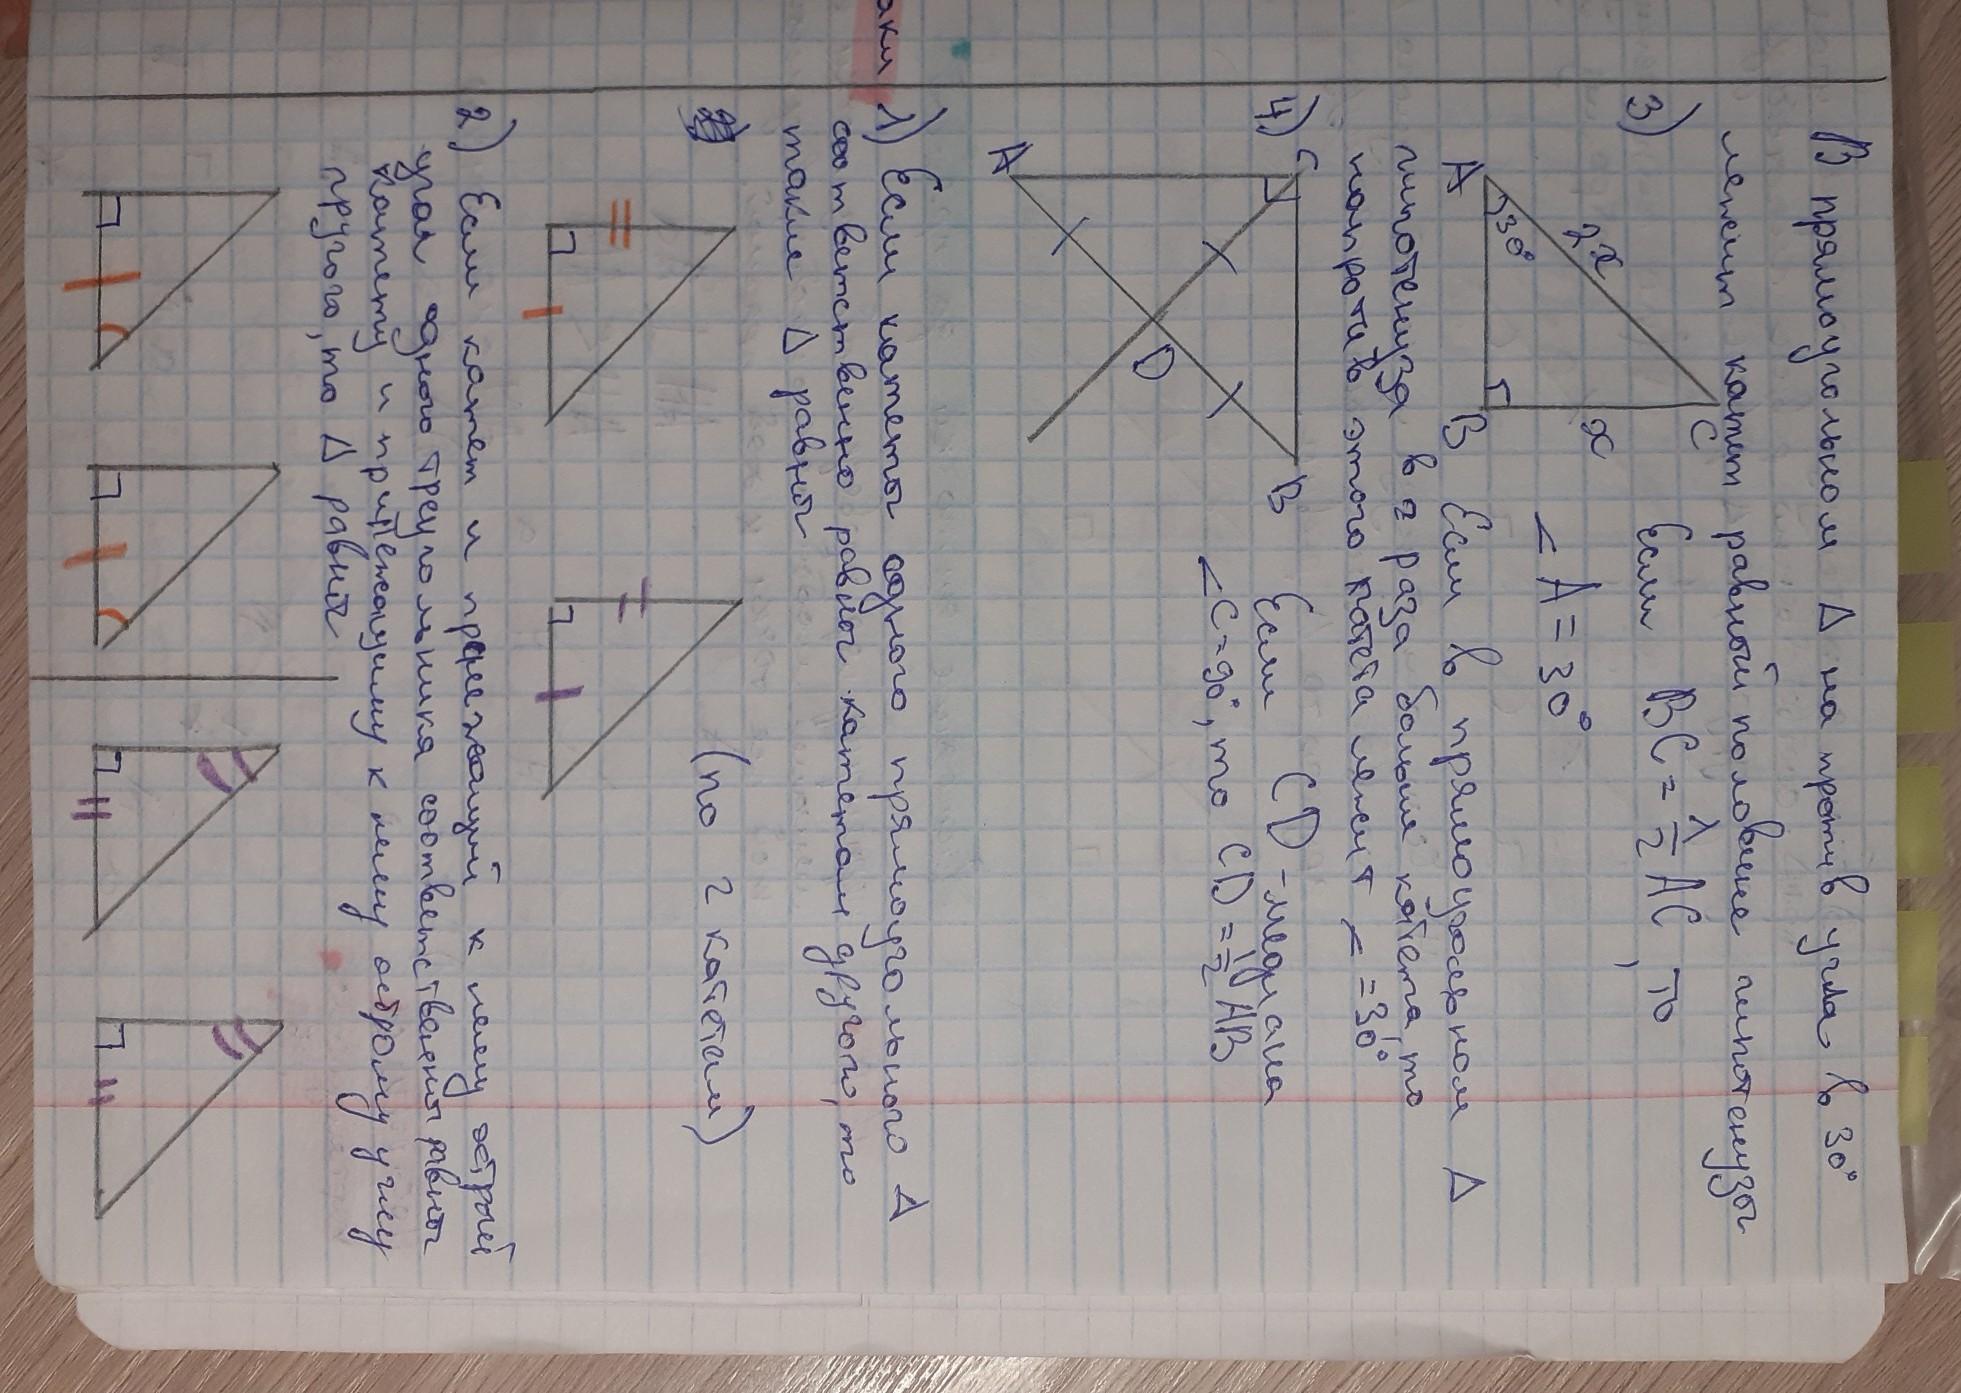 В прямоугольном Δ на против угла в 30°
лежит катет равный половине гипотенузы
3)
A
30°
2x
C
x
B
Если BC = 1/2 AC, то
< A = 30°
Если в прямоугольном Δ
гипотенуза в 2 раза больше катета, то
напротив этого катета лежит < = 30°
4)
C
A
D
B
Если CD - медиана
< C = 90°, то CD = 1/2 AB
аки
1) Если катеты одного прямоугольного Δ
соответственно равны катетам другого, то
такие Δ равны
(по 2 катетам)
2) Если катет и прилежащий к нему острый
угол одного треугольника соответственны равны
катету и прилежащему к нему острому углу
другого, то Δ равны